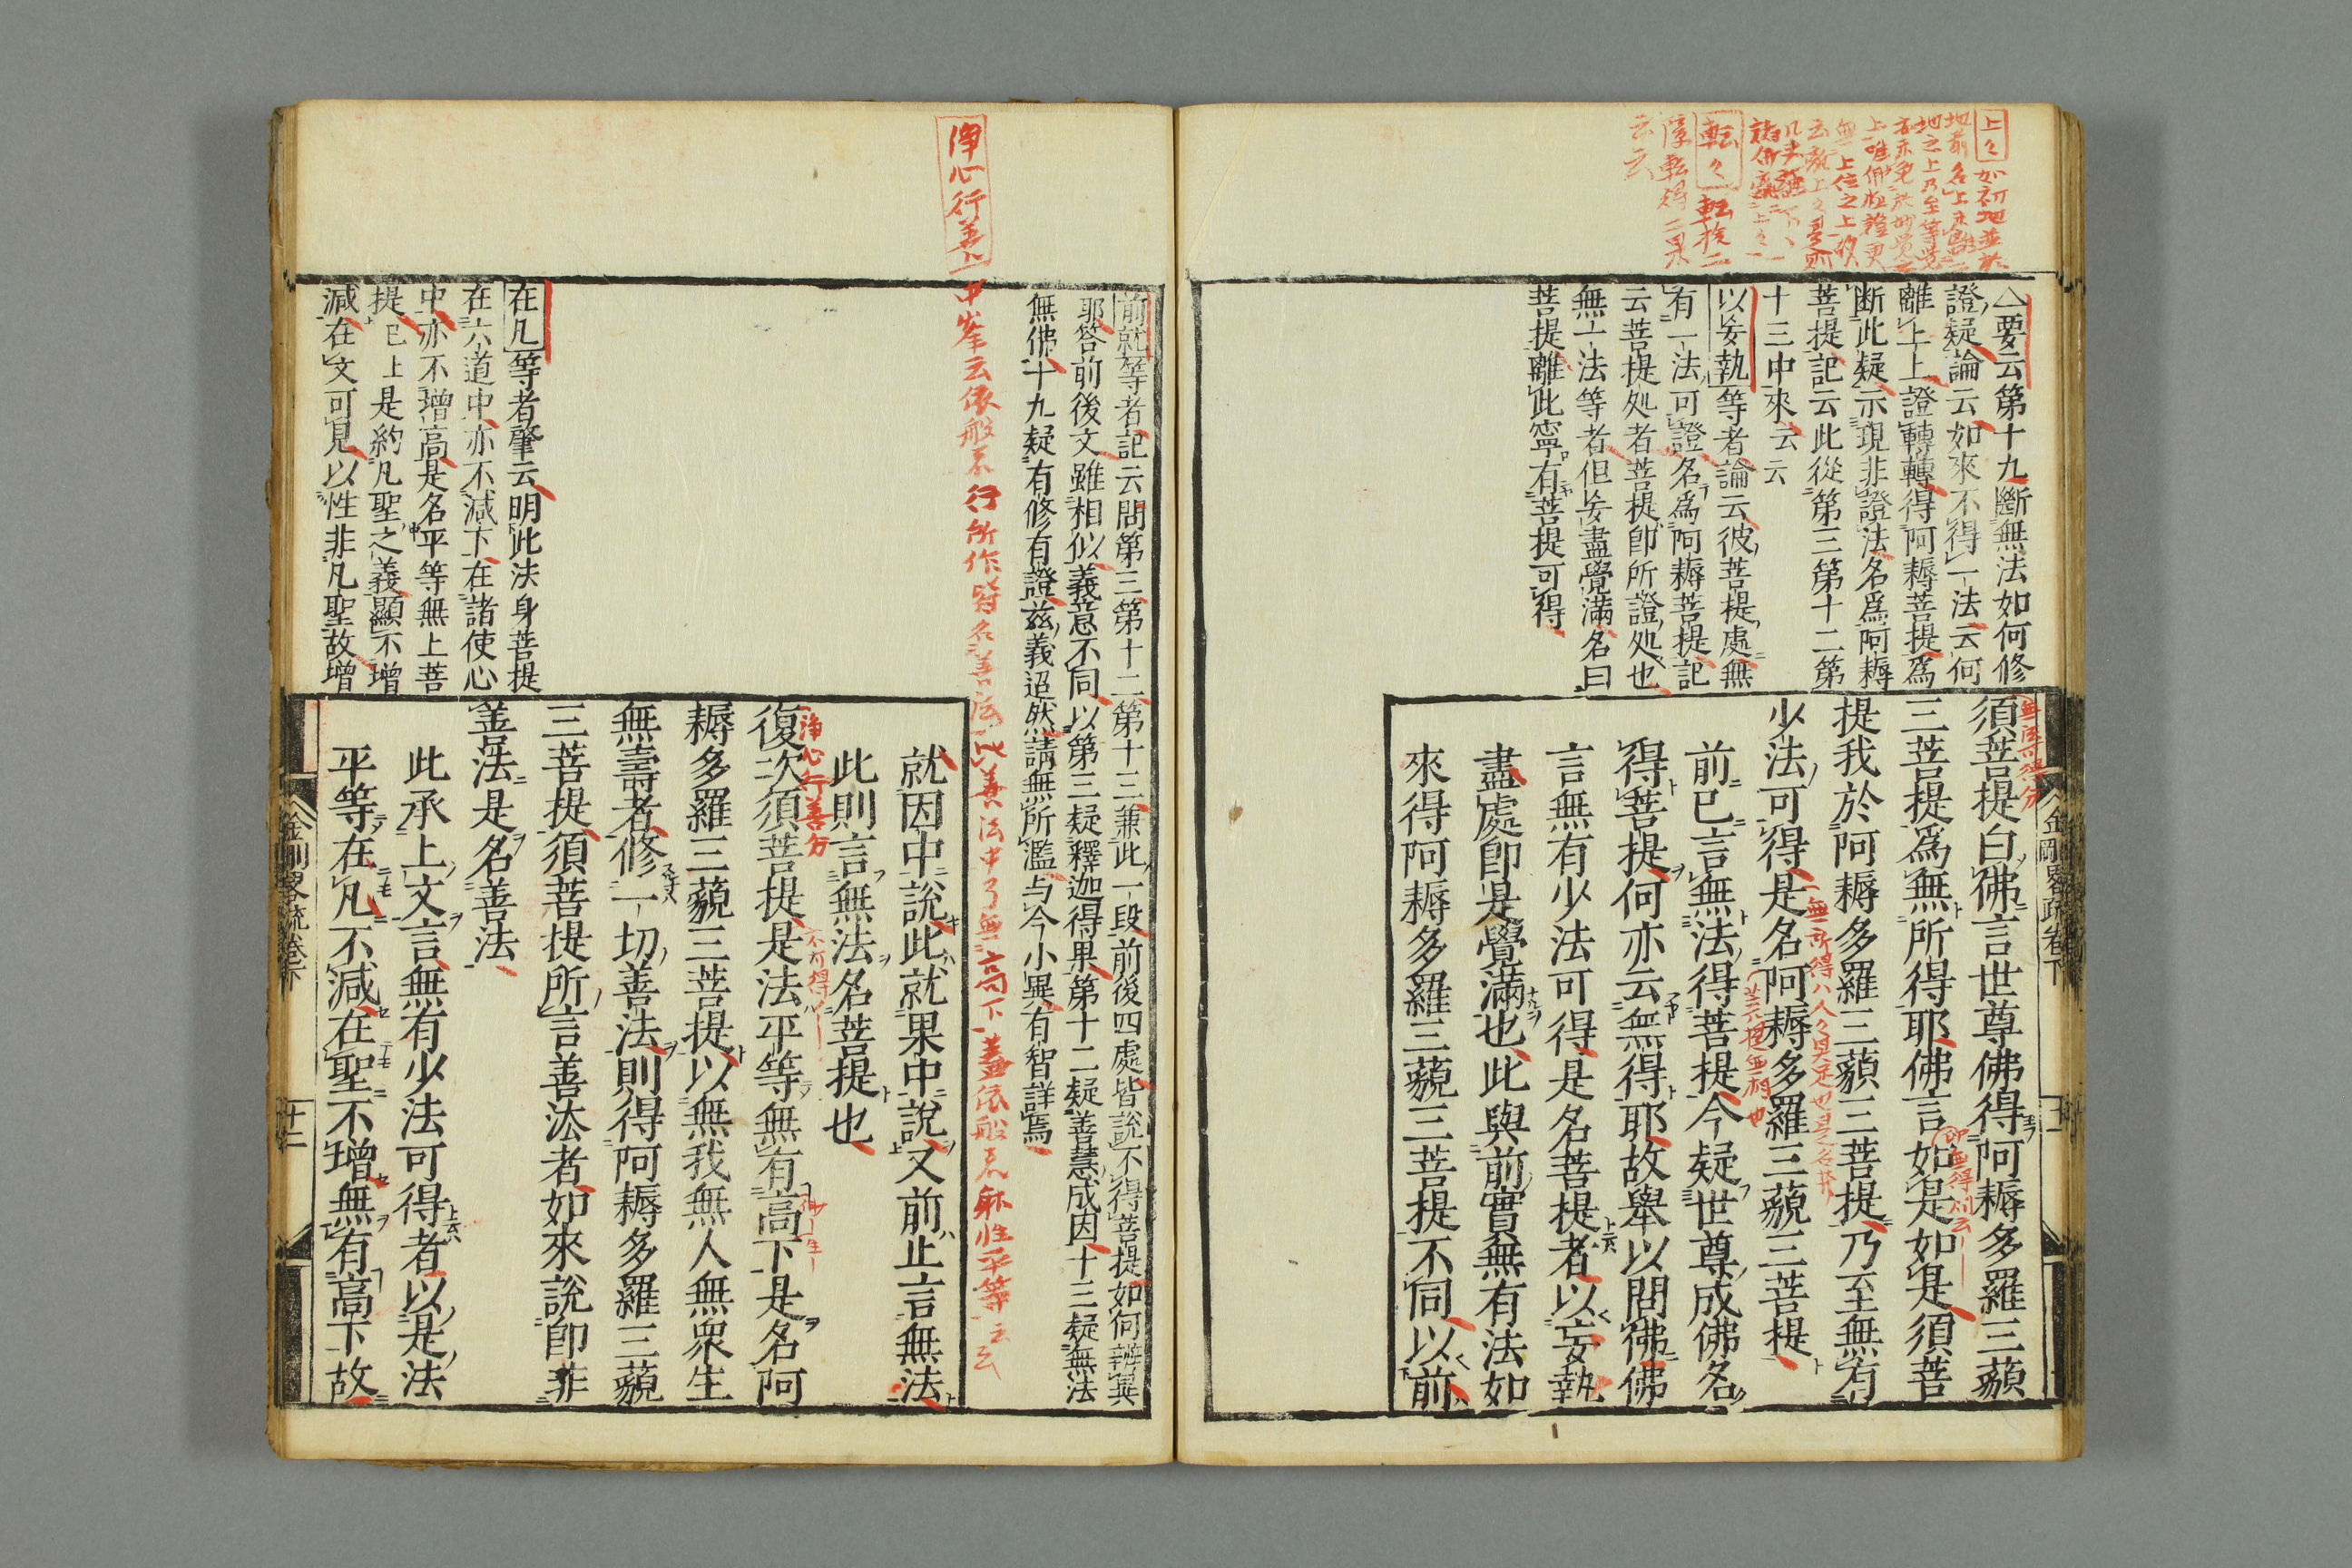 上々如初地並於
地前名上亦
地之上乃至等覚
上唯佛
無上位之上故
転々 転捨二
障転得二果
云云
要云第十九斷無法如何修
證疑論云如來不得一法云何
離上上證轉轉得阿耨菩提爲
断此疑示現非證法名爲阿耨
菩提記云此從第三第十二第
十三中來云云
以妄執等者論云彼菩提處無
有一法可證名爲阿耨菩提記
云菩提処者菩提卽所證処也
無一法等者但妄盡覺滿名曰
菩提離此寧有菩提可得
金剛畧疏卷下
無法可得分
須菩提白佛言世尊佛得阿耨多羅三藐
三菩提爲無所得耶佛言如是如是須菩
卽無得問云
提我於阿耨多羅三藐三菩提乃至無有
無所得八人々具足也是名菩提
少法可得是名阿耨多羅三藐三菩提
前已言無法得菩提今疑世尊成佛名
得菩提何亦云無得耶故舉以問佛佛
言無有少法可得是名菩提者以妄執
盡處卽是覺滿也此與前實無有法如
來得阿耨多羅三藐三菩提不同以前
前就等者記云問第三第十二第十三兼此一段前後四處皆説不得菩提如何辨異
耶答前後文雖相似義意不同以第三疑釋迦得果第十二疑善慧成因十三疑無法
無佛十九疑有修有證茲義迢然請無所濫与今小異有智詳焉
淨心行善 中峯云依般若行所作皆名善法此善法中了無高下蓋依般若躰性平等云云
就因中說此就果中說又前止言無法
此則言無法名菩提也
淨心行善分
復次須菩提是法平等無有高下是名阿
耨多羅三藐三菩提以無我無人無衆生
無壽者修一切善法則得阿耨多羅三藐
三菩提須菩提所言善法者如來說卽非
善法是名善法
此承上文言無有少法可得者以是法
平等在凡不減在聖不增無有高下故
在凡等者肇云明此法身菩提
在六道中亦不減下在諸使心
中亦不增高是名平等無上菩
提已上是約凡聖之義顯不增
減在文可見以性非凡聖故增
金剛畧疏卷下
十二